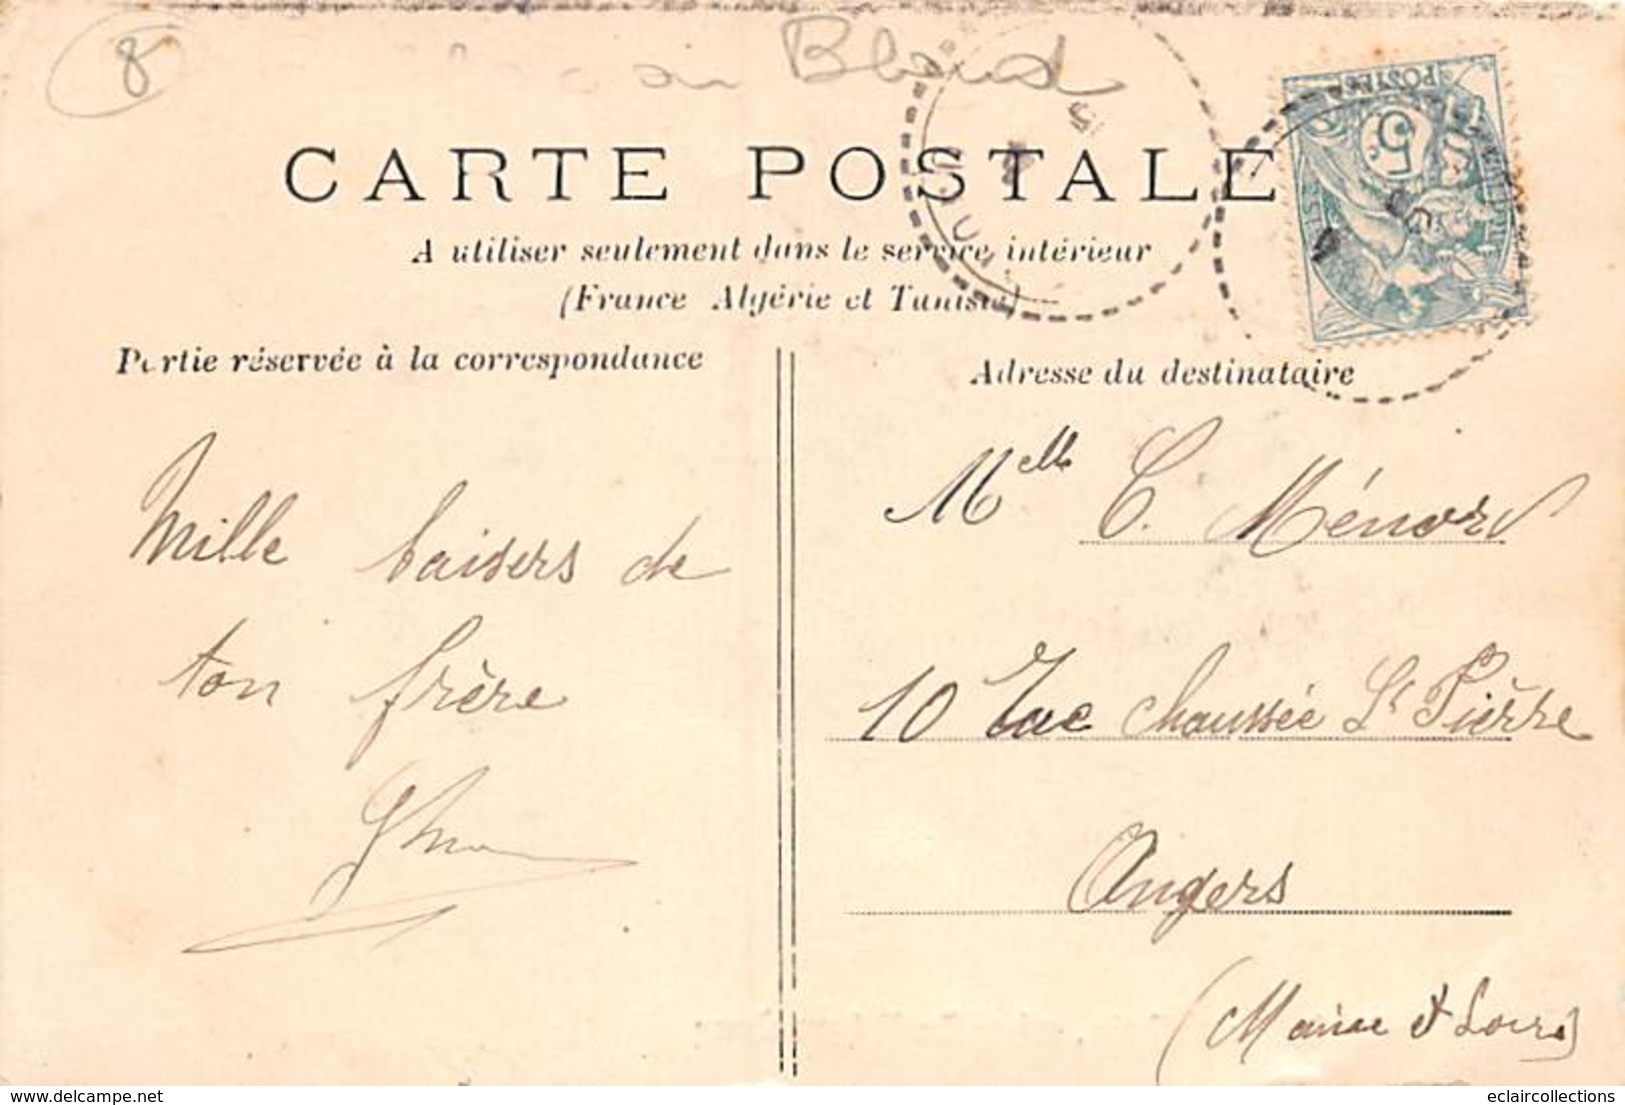 8
Bland
CARTE POSTALE
A utiliser seulement dans le service intérieur
(France Algérie et Tunisie)
POSTES
5
Partie réservée à la correspondance
Adresse du destinataire
Mille baisers de
ton frère
Mlle C. Ménard
10 rue chaussée St Pierre
Angers
(Maine et Loire)
delcampe.net
eclaircollections